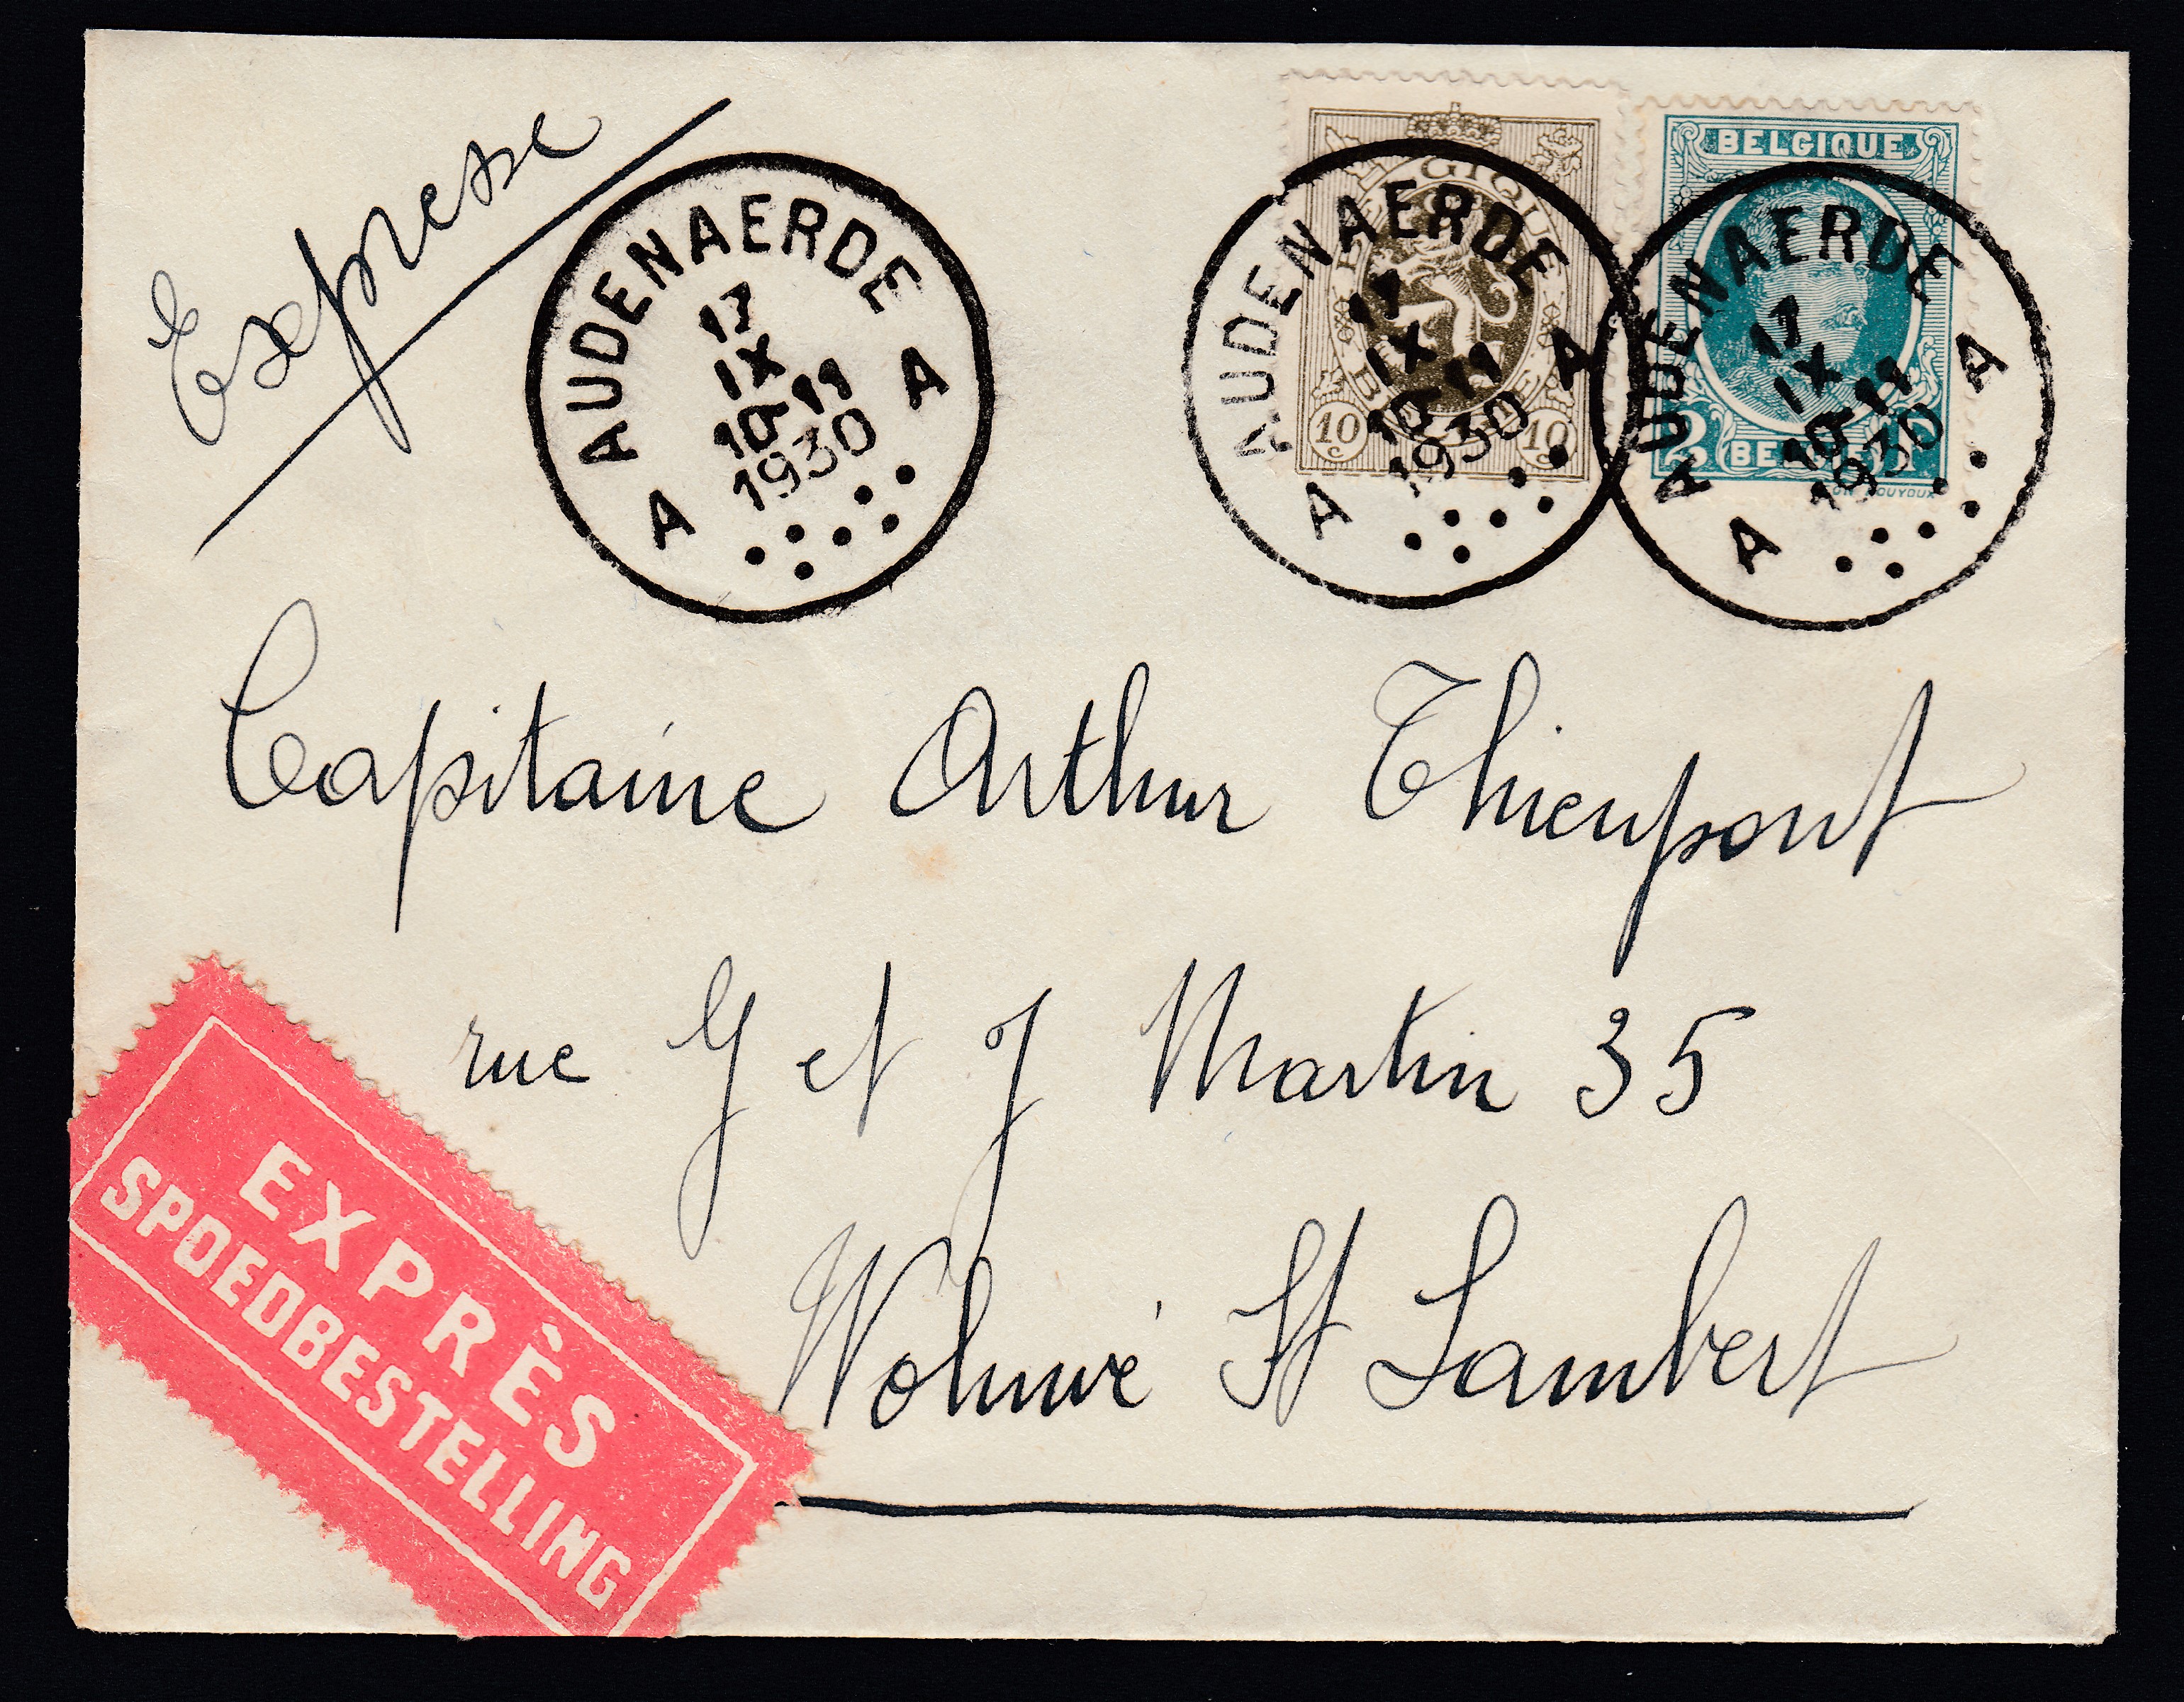 Expresse
AUDENAERDE
17
IX
10-11
1930
A A
BELGIQUE
BELGIË
10c 10c
AUDENAERDE
17
IX
10-11
1930
A A
BELGIQUE
BELGIË
AUDENAERDE
17
IX
10-11
1930
A A
Capitaine Arthur Thienpont
rue G et J Martin 35
Woluwé St Lambert
EXPRÈS
SPOEDBESTELLING